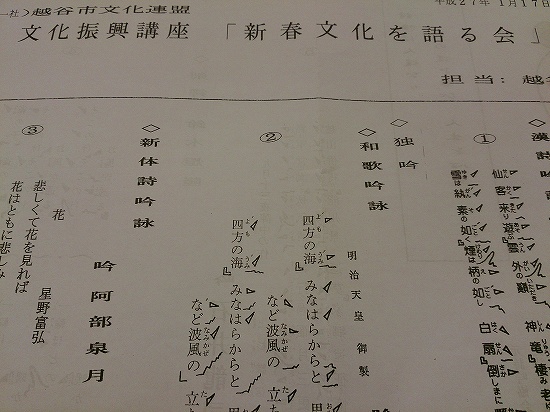 社）越谷市文化連盟
平成27年1月17日
文化振興講座 「新春文化を語る会」
担当：越
◇漢詩吟
①
仙客来り遊ぶ雲外の巓 神竜棲み老
雪は紈素の如く煙は柄の如し 白扇倒しまに
◇独吟
◇和歌吟詠
明治天皇御製
②
四方の海 みなはらからと
など波風の 立ち
四方の海 みなはらからと
など波風の 立ち
◇新体詩吟詠
吟 阿部泉月
③
花 星野富弘
悲しくて花を見れば
花はともに悲しみ